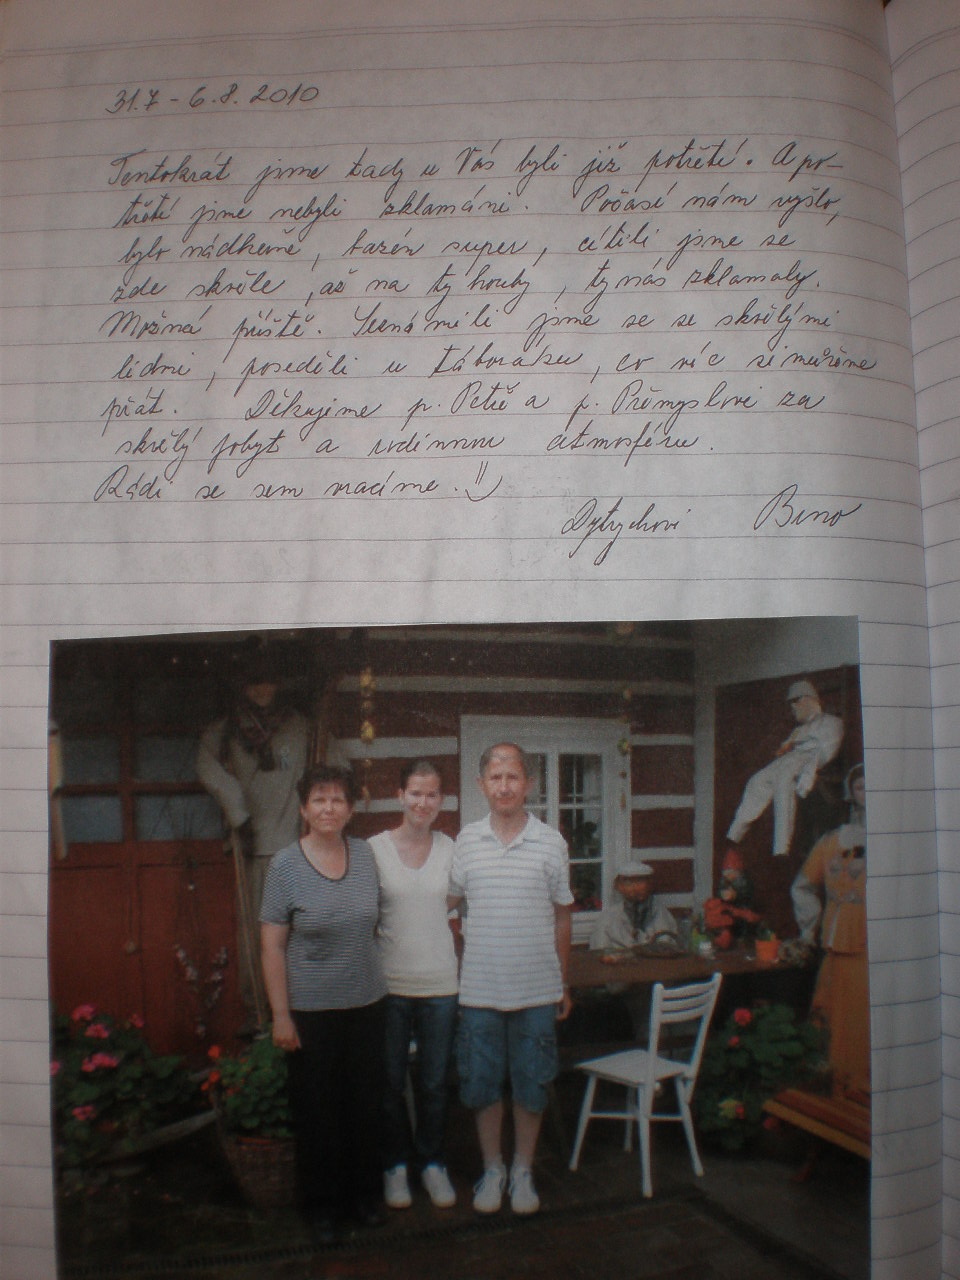 31.7 - 6.8. 2010
Tentokrát jsme tady u Vás byli již potřetí. A po-
třetí jsme nebyli zklamáni. Počasí nám vyšlo,
bylo nádherně, bazén super, cítili jsme se
zde skvěle, až na ty houby, ty nás zklamaly.
Možná příště. Seznámili jsme se se skvělými
lidmi, poseděli u táboráku, co víc si můžeme
přát. Děkujeme p. Petře a p. Přemyslovi za
skvělý pobyt a rodinnou atmosféru.
Rádi se sem vracíme.
Dytrychovi Brno